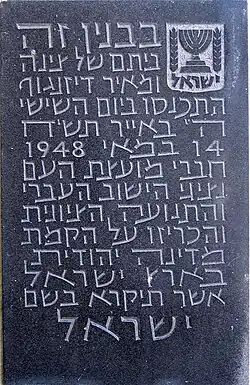 בבנין זה
ביתם של צינה
ומאיר דיזנגוף
ישראל
התכנסו ביום הששי
ה' באייר תש״ח
14 במאי 1948
חברי מועצת העם
נציגי הישוב העברי
והתנועה הציונית
והכריזו על הקמת
מדינה יהודית
בארץ ישראל
אשר תיקרא בשם
ישראל